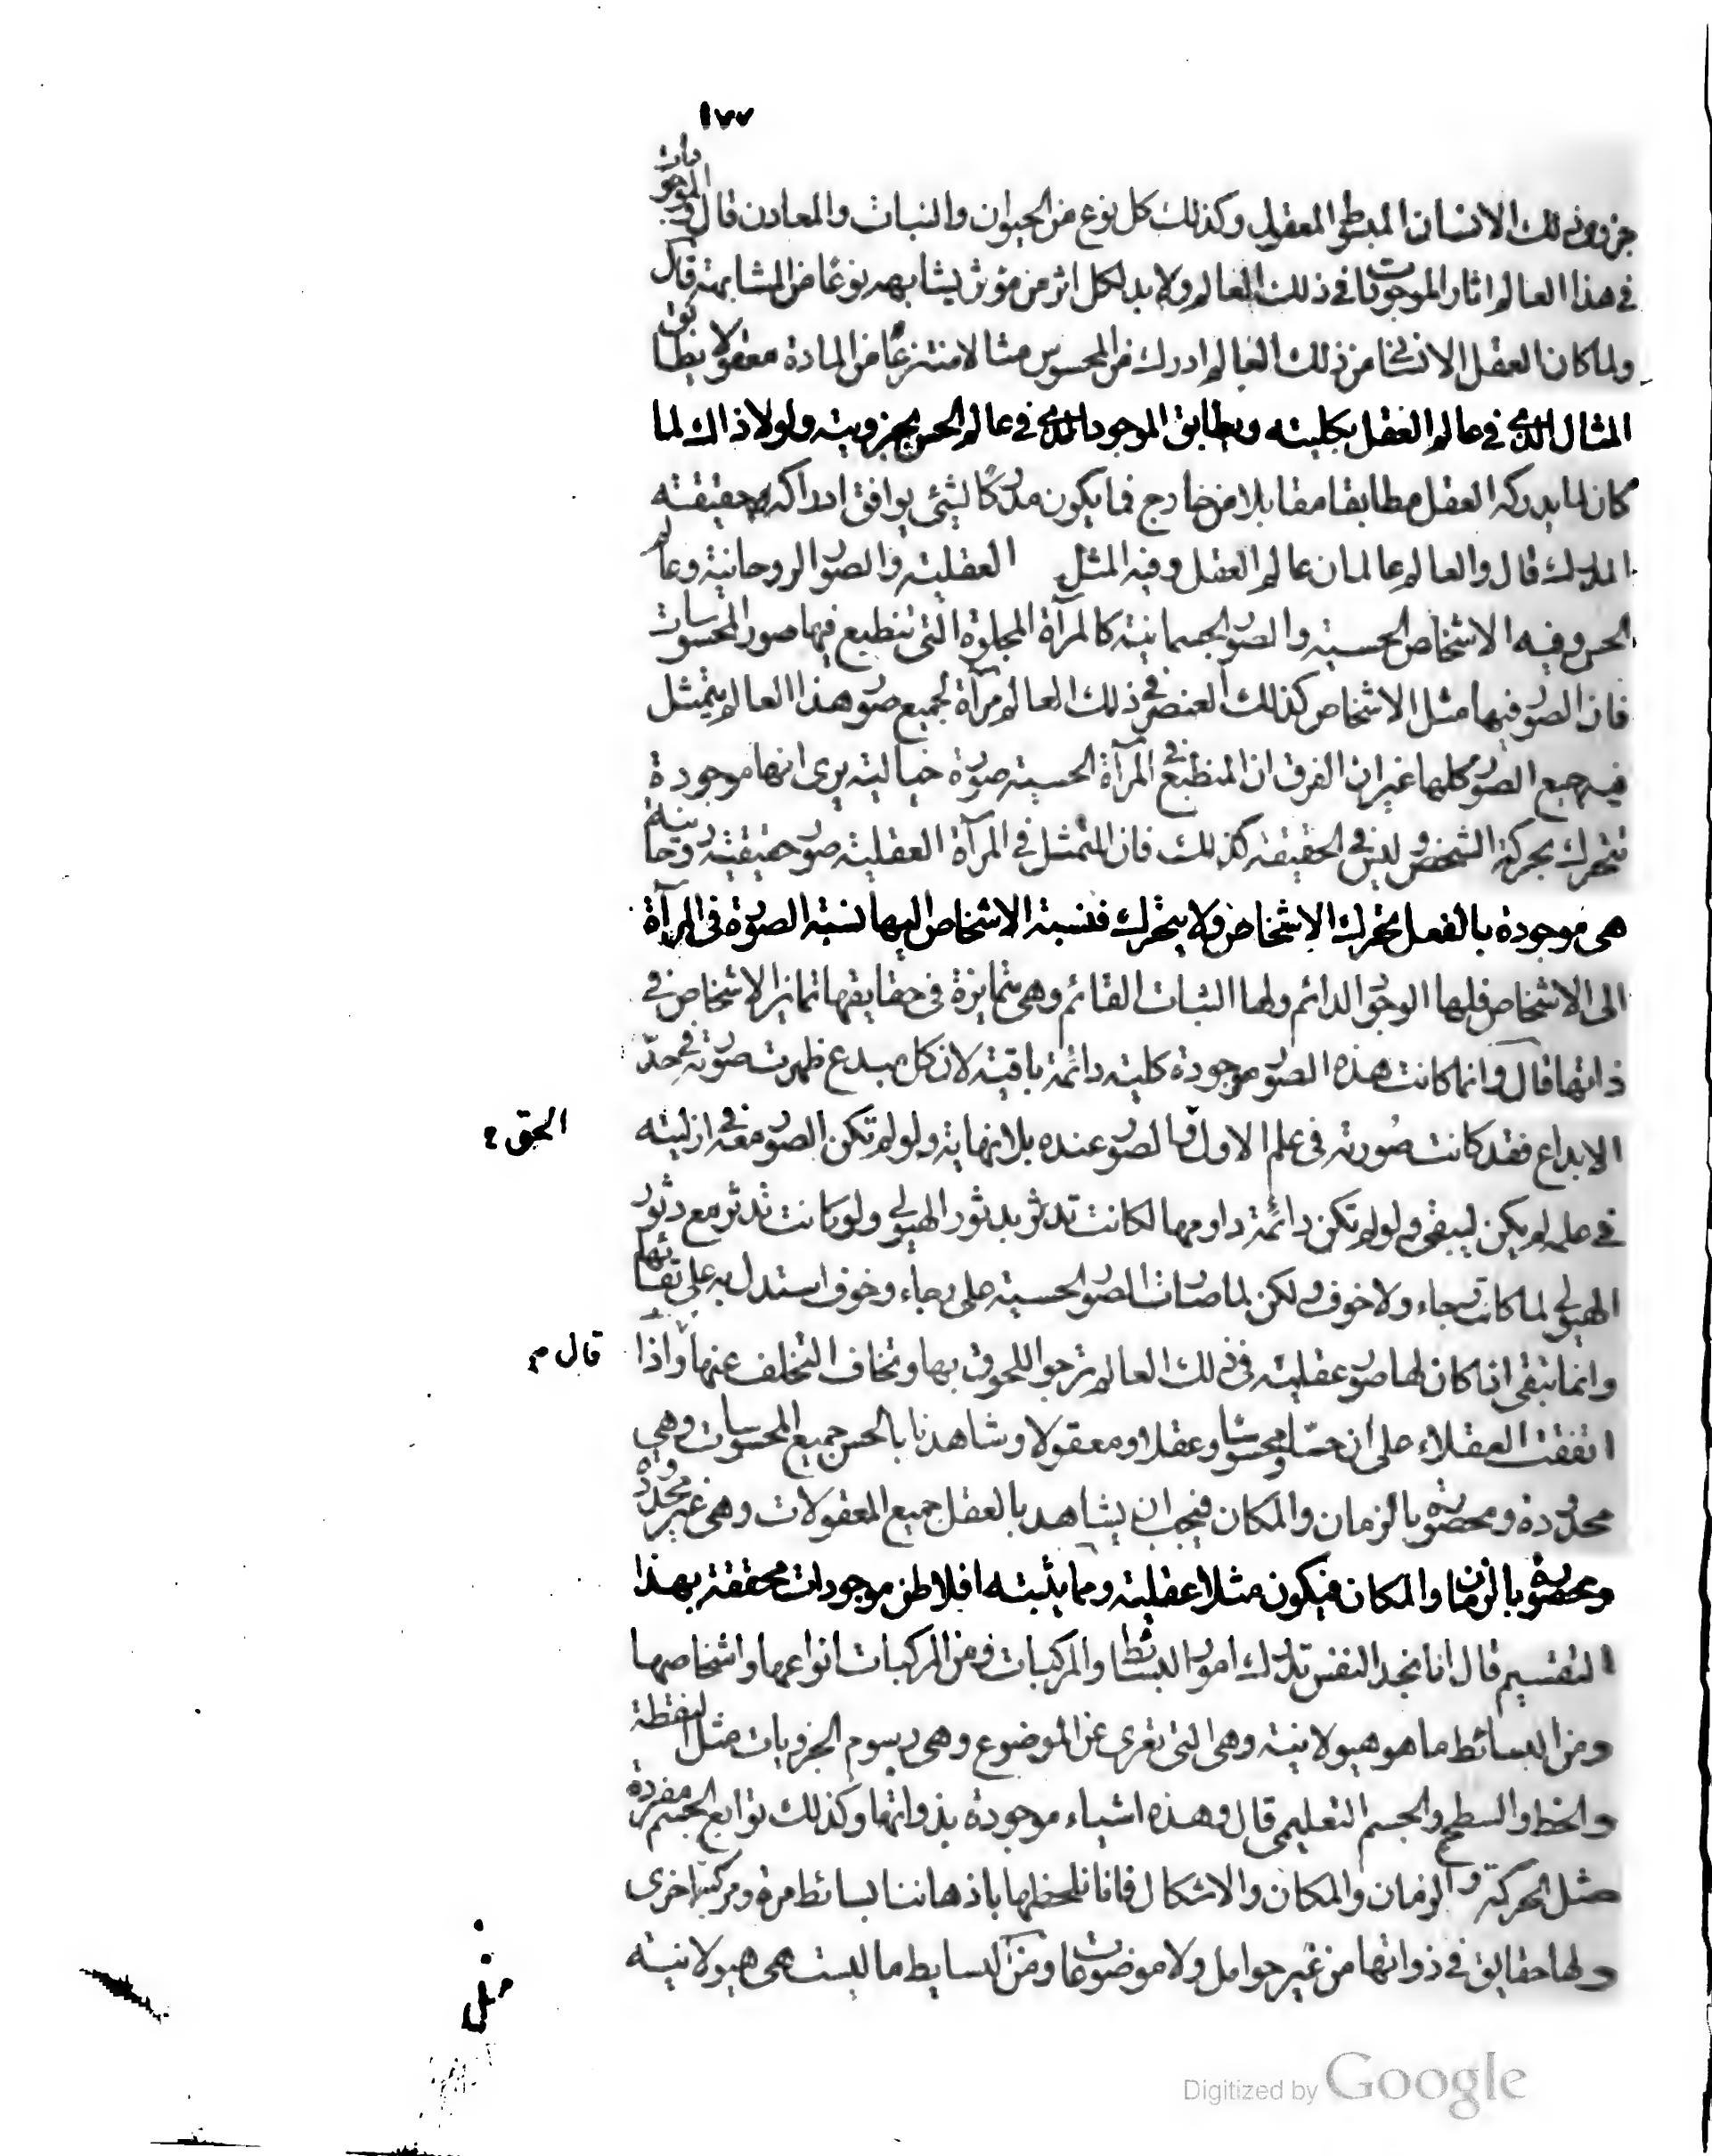 ١٧٧
جزوى ذلك الانسان المبسوط المعقول وكذلك كل نوع من الحيوان والنبات والمعادن قال والموجودات
فى هذا العالم اثار الموجودات فى ذلك العالم ولا بد لكل اثر من مؤثر يشابهه نوعًا من المشابهة قال
ولما كان العقل الانسانى من ذلك العالم ادرك من المحسوس مثالا منتزعًا من المادة معقولا يطابق
المثال الذى فى عالم العقل بكليته ويطابق الموجود الذى فى عالم الحس بجزويته ولولا ذاك لما
كان لما يدركه العقل مطابقا مقابلا من خارج فما يكون مدركًا لشئ يوافق ادراكه حقيقته
المدرك قال والعالم عالمان عالم العقل وفيه المثل العقلية والصور الروحانية وعالم
الحس وفيه الاشخاص الحسية والصور الجسمانية كالمرآة المجلوة التى تنطبع فيها صور المحسوسات
فان الصور فيها مثل الاشخاص كذلك العنصر فى ذلك العالم مرآة لجميع صور هذا العالم يتمثل
فيه جميع الصور كلها غير ان الفرق ان المنطبع فى المرآة الحسية صورة خيالية يرى انها موجودة
تتحرك بحركة الشخص وليس فى الحقيقة كذلك فان المتمثل فى المرآة العقلية صور حقيقية روحانية
هى موجودة بالفعل تحرك الاشخاص ولا يتحرك فنسبة الاشخاص اليها نسبة الصورة فى المرآة
الى الاشخاص فلها الوجود الدائم ولها الثبات القائم وهى متمايزة فى حقايقها تمايز الاشخاص فى
ذاتها قال وانما كانت هذه الصور موجودة كلية دائمة باقية لان كل مبدع ظهرت صورته فى حدّ
الابداع فقد كانت صورته فى علم الاول والصور عنده بلا نهاية ولو لم تكن الصور معه فى ازليته
الحق ٤
فى علمه لم يكن ليبقى ولو لم تكن دائمة دوامها لكانت تدثر بدثور الهيولى ولو كانت تدثر مع دثور
الهيولى لما كانت رجاء ولا خوف ولكن لما صارت الصور الحسية على رجاء وخوف استدل به على بقائها
وانما تبقى اذا كان لها صور عقلية فى ذلك العالم ترجوا اللحوق بها وتخاف التخلف عنها واذا
قال م
اتفقت العقلاء على ان حسّا ومحسوسا وعقلا ومعقولا وشاهدنا بالحس جميع المحسوسات وهى
محدودة ومحصورة بالزمان والمكان فيجب ان يشاهد بالعقل جميع المعقولات وهى غير محدودة
ومحصورة بالزمان والمكان فيكون مثلا عقلية ومما يثبته افلاطن موجودات محققة بهذا
التقسيم قال انا نجد النفس تدرك امور البسائط والمركبات ومن المركبات انواعها واشخاصها
ومن البسائط ما هو هيولانية وهى التى تعرى عن الموضوع وهى رسوم الجزويات مثل النقطة
والخط والسطح والجسم التعليمى قال وهذه اشياء موجودة بذواتها وكذلك توابع الجسم مفردة
مثل الحركة والزمان والمكان والاشكال فانا نلحظها باذهاننا بسائط مرة ومركبة اخرى
ولها حقايق فى ذواتها من غير حوامل ولا موضوعات ومن البسايط ما ليست هى هيولانية
مثل
Digitized by Google